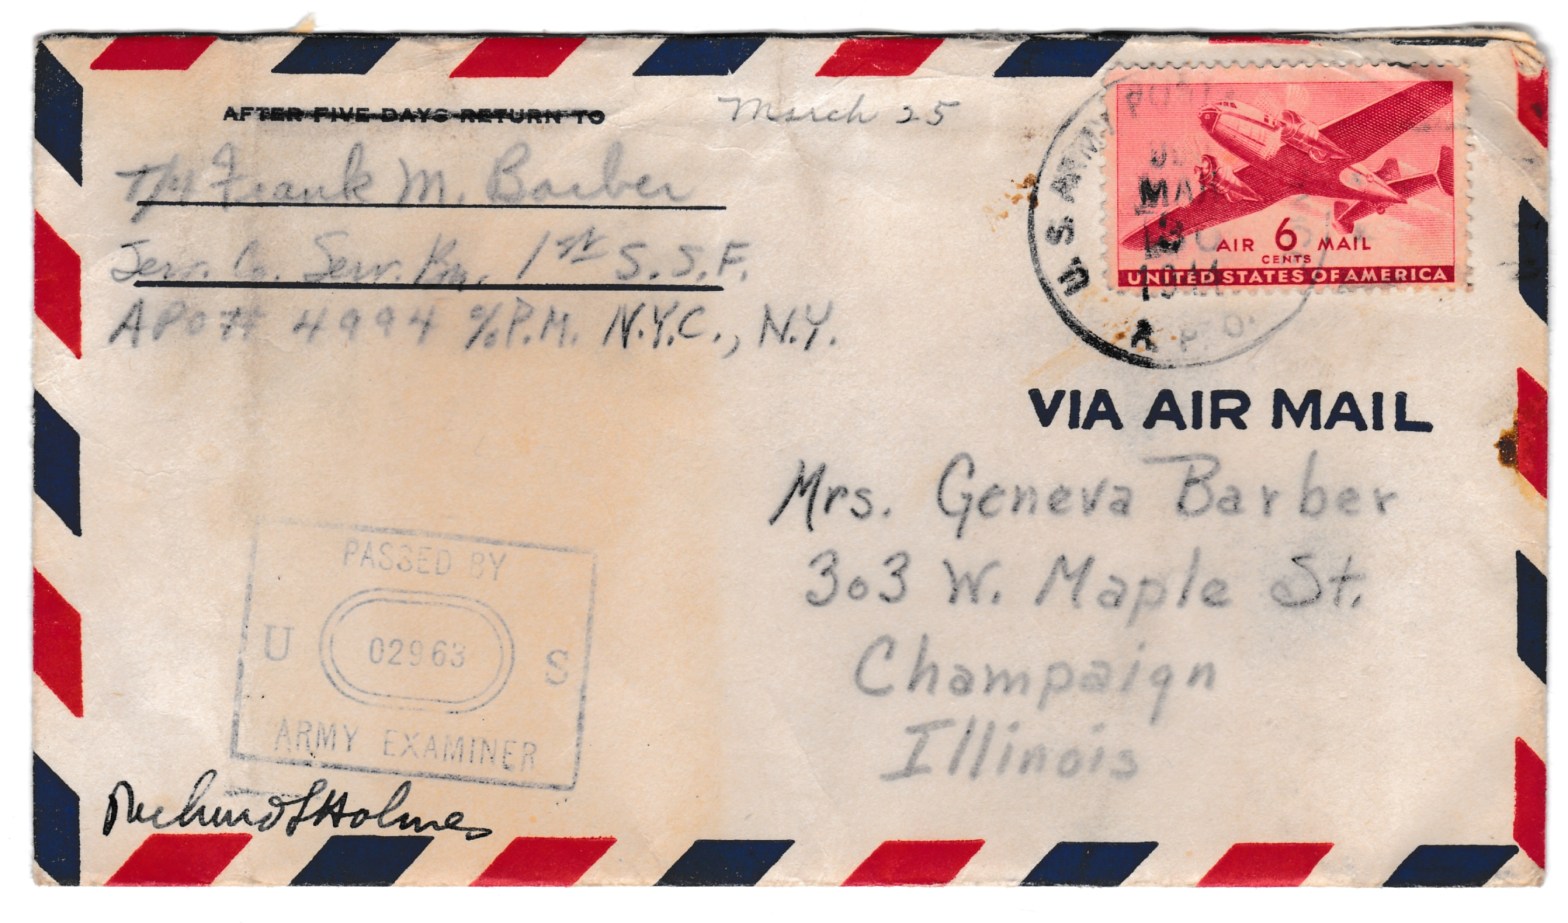 AFTER FIVE DAYS RETURN TO
March 25
T/4 Frank M. Barber
Serv. Co. Serv. Bn. 1st S.S.F.
APO # 4994 %P.M. N.Y.C., N.Y.
U.S. ARMY
MAR
30
1944
A.P.O.
AIR 6 MAIL
CENTS
UNITED STATES OF AMERICA
VIA AIR MAIL
Mrs. Geneva Barber
303 W. Maple St.
Champaign
Illinois
PASSED BY
U 02963 S
ARMY EXAMINER
Richard L Holmes